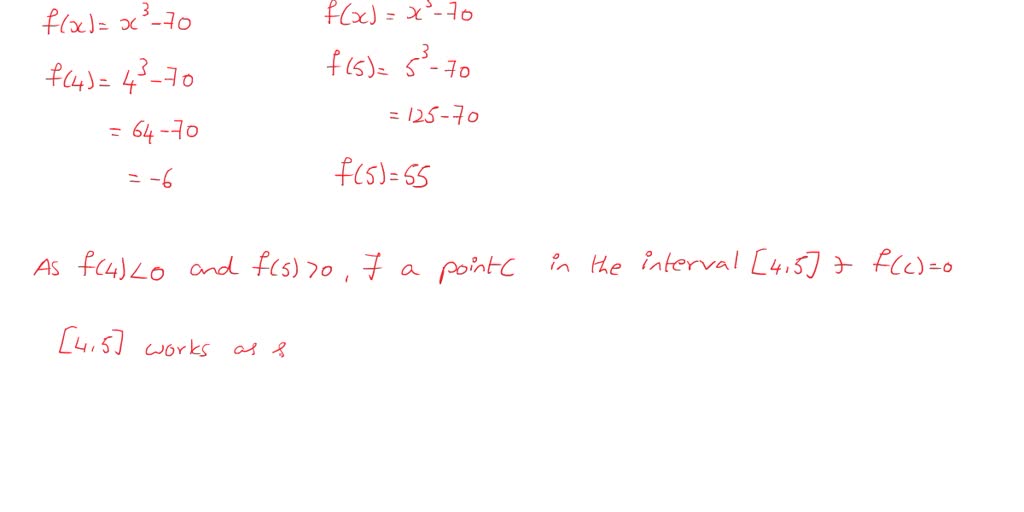 f(x) = x³-70
f(4) = 4³-70
= 64-70
= -6
f(x) = x³-70
f(5) = 5³-70
= 125-70
f(5) = 55
As f(4)<0 and f(5)>0, a point C in the interval [4,5] f(c)=0
[4,5] works as